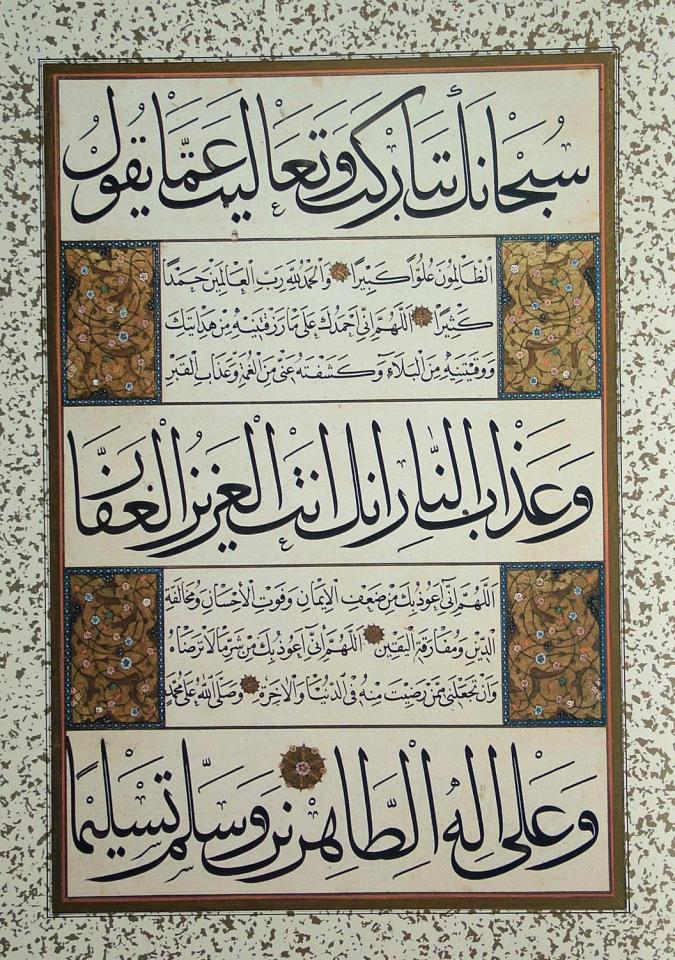 سُبْحَانَكَ تَبَارَكْتَ وَتَعَالَيْتَ عَمَّا يَقُولُ
الظَّالِمُونَ عُلُوًّا كَبِيرًا وَالْحَمْدُ لِلَّهِ رَبِّ الْعَالَمِينَ حَمْدًا
كَثِيرًا اَللَّهُمَّ اِنِّي اَحْمَدُكَ عَلَى مَا رَزَقْتَنِيهِ مِنْ هِدَايَتِكَ
وَوَقَيْتَنِيهِ مِنَ الْبَلَاءِ وَكَشَفْتَهُ عَنِّي مِنَ الْغُمَّةِ وَعَذَابِ الْقَبْرِ
وَعَذَابِ النَّارِ اِنَّكَ اَنْتَ الْعَزِيزُ الْغَفَّارُ
اَللَّهُمَّ اِنِّي اَعُوذُ بِكَ مِنْ ضَعْفِ الْإِيمَانِ وَفَوْتِ الْأِحْسَانِ وَمُخَالَفَةِ
الدِّينِ وَمُفَارَقَةِ الْيَقِينِ اَللَّهُمَّ اِنِّي اَعُوذُ بِكَ مِنْ شَرِّ مَا لَا تَرْضَاهُ
وَاَنْ تَجْعَلَنِي مِمَّنْ رَضِيتَ مِنْهُ فِي الدُّنْيَا وَالْاٰخِرَةِ وَصَلَّى اللَّهُ عَلَى مُحَمَّدٍ
وَعَلَى اٰلِهِ الطَّاهِرِينَ وَسَلَّمَ تَسْلِيمًا